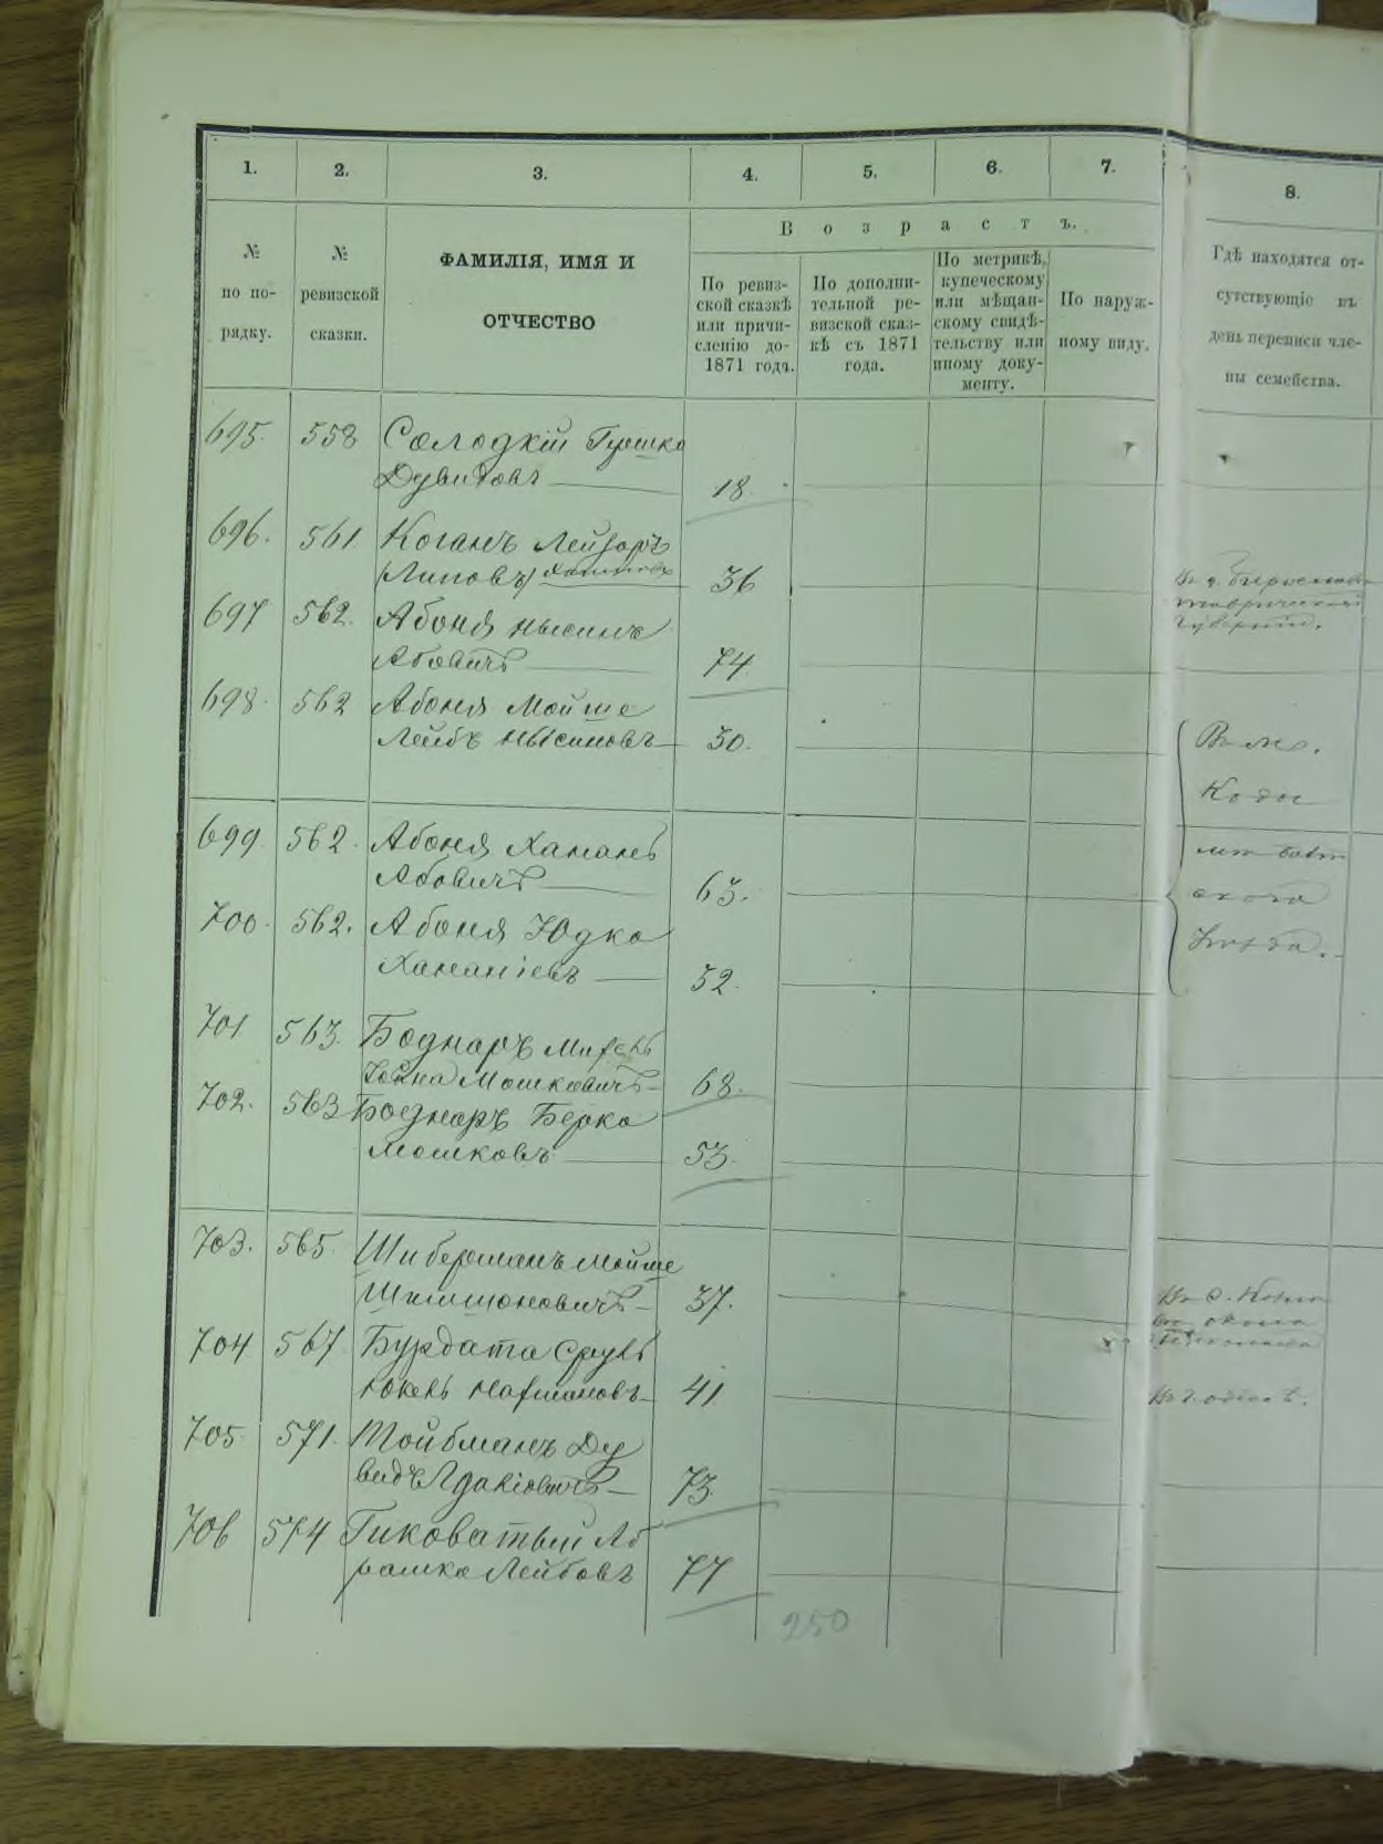 1. 2. 3. 4. 5. 6. 7. 8.
№ по по-рядку.
№ ревизской сказки.
ФАМИЛІЯ, ИМЯ И
ОТЧЕСТВО
Возрастъ.
По ревиз-
ской сказкѣ
или причи-
сленію до-
1871 года.
По дополни-
тельной ре-
визской сказ-
кѣ съ 1871
года.
По метрикѣ,
купеческому
или мѣщан-
скому свидѣ-
тельству или
иному доку-
менту.
По наруж-
ному виду.
Гдѣ находятся от-
сутствующіе въ
день переписи чле-
ны семейства.
695. 558 Солодкій Гершко
Дувидовъ 18.
696. 561 Коганъ Лейзоръ
(Липовъ) 36
697 562. Абоня Нысинъ
Абовичъ 74.
698. 562 Абоня Мойше
Лейбъ Нысиновъ 30.
699. 562. Абоня Хананъ
Абовичъ 63.
700. 562. Абоня Юдко
Хананіевъ 32.
701 563. Боднаръ
Мошковичъ 68.
702. 563 Боднаръ Берко
Мошковъ 53.
703. 565. Шиберманъ Мойше
Шимшоновичъ 37.
704 567 Бурдата Сруль
41.
705 571. Тойбманъ Ду
видъ 73.
706 574 Гиковатый Аб
рамко Лейбовъ 77
Таврической
Губерніи.
Въ г. Одессѣ.
250